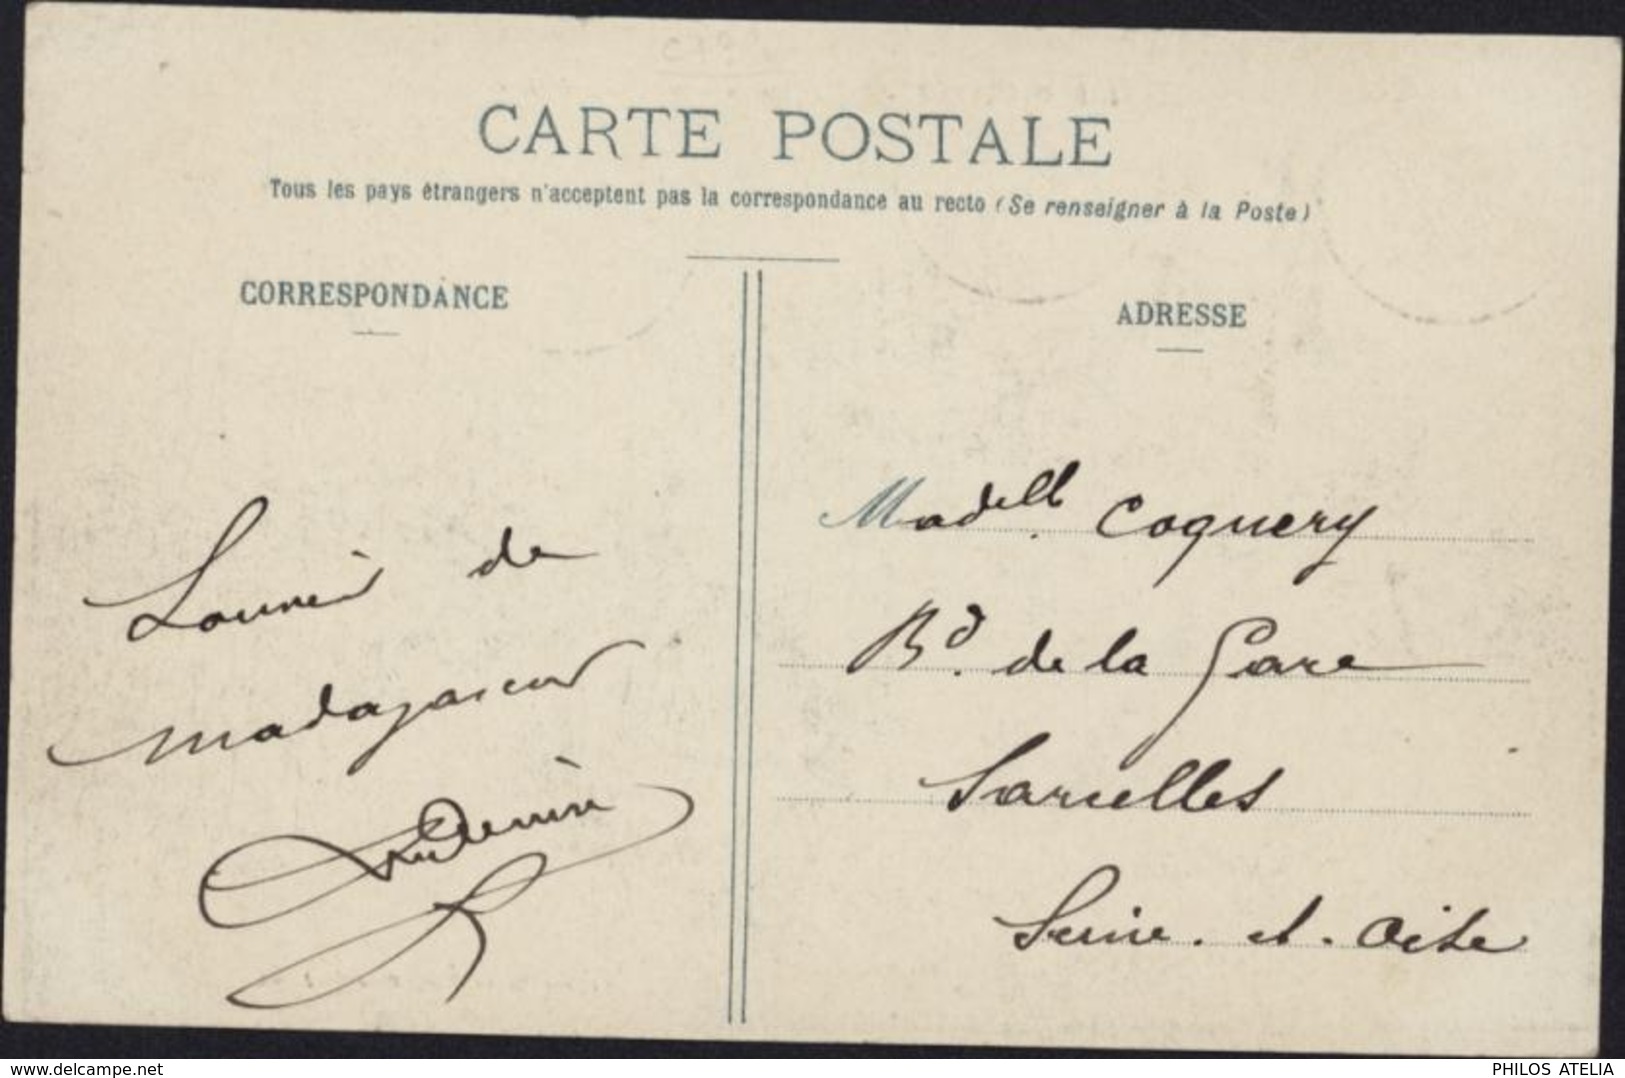 CARTE POSTALE
Tous les pays étrangers n'acceptent pas la correspondance au recto (Se renseigner à la Poste)
CORRESPONDANCE
ADRESSE
de
madagascar
Madelle Coquery
Bd. de la Gare
Sarcelles
Seine. et. Oise
delcampe.net
PHILOS ATELIA